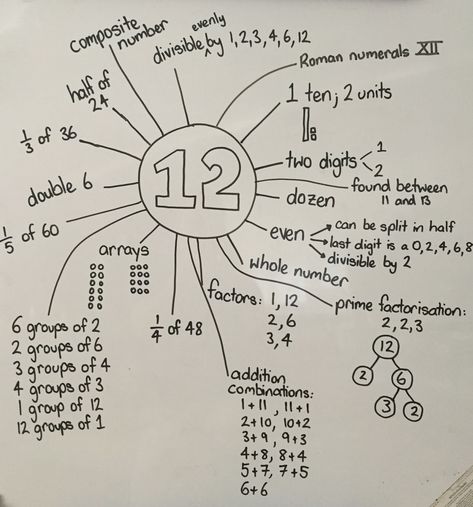 12
composite
number
evenly
divisible ^ by 1,2,3,4,6,12
Roman numerals XII
1 ten; 2 units
two digits
1
2
found between
11 and 13
dozen
even
can be split in half
last digit is a 0,2,4,6,8
divisible by 2
whole number
prime factorisation:
2,2,3
12
2
6
3
2
factors: 1,12
2,6
3,4
addition
combinations:
1+11, 11+1
2+10, 10+2
3+9, 9+3
4+8, 8+4
5+7, 7+5
6+6
1/4 of 48
arrays
6 groups of 2
2 groups of 6
3 groups of 4
4 groups of 3
1 group of 12
12 groups of 1
1/5 of 60
double 6
1/3 of 36
half of
24